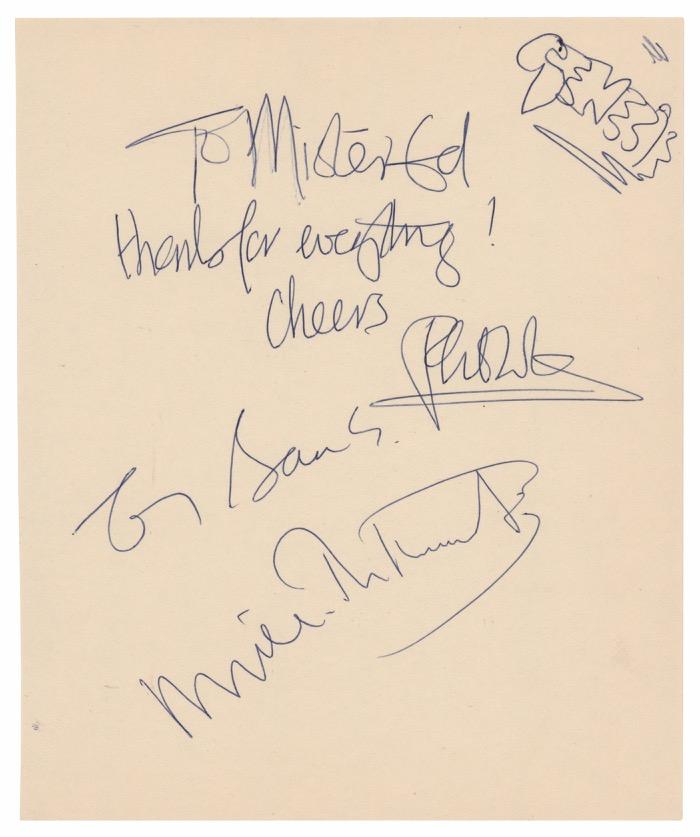 GENESIS
To Mister Ed
thanks for everything!
Cheers
Tony Banks.
Mike Rutherford